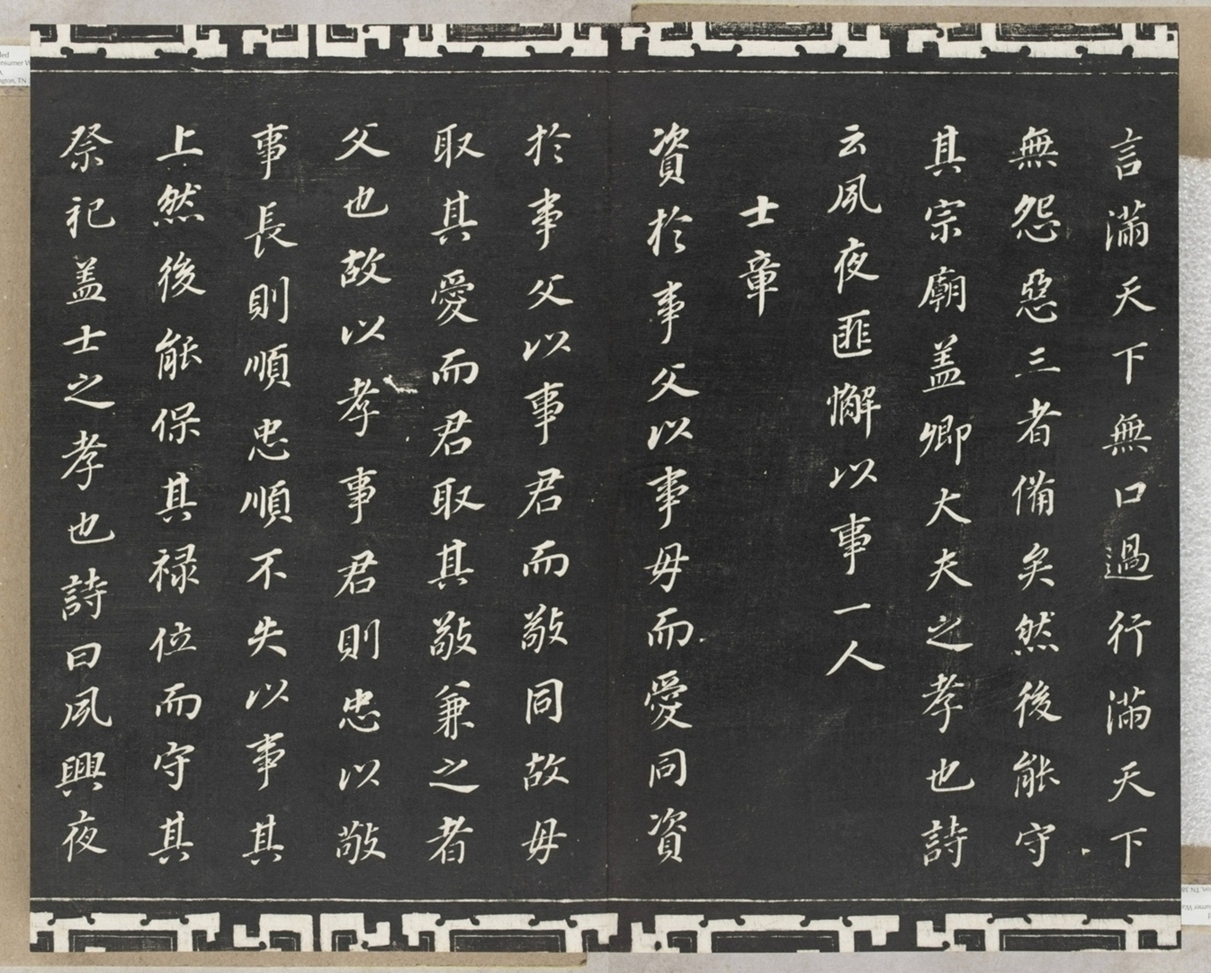 言滿天下無口過行滿天下
無怨惡三者備矣然後能守
其宗廟盖卿大夫之孝也詩
云夙夜匪懈以事一人
士章
資於事父以事母而愛同資
於事父以事君而敬同故母
取其愛而君取其敬兼之者
父也故以孝事君則忠以敬
事長則順忠順不失以事其
上然後能保其禄位而守其
祭祀盖士之孝也詩曰夙興夜